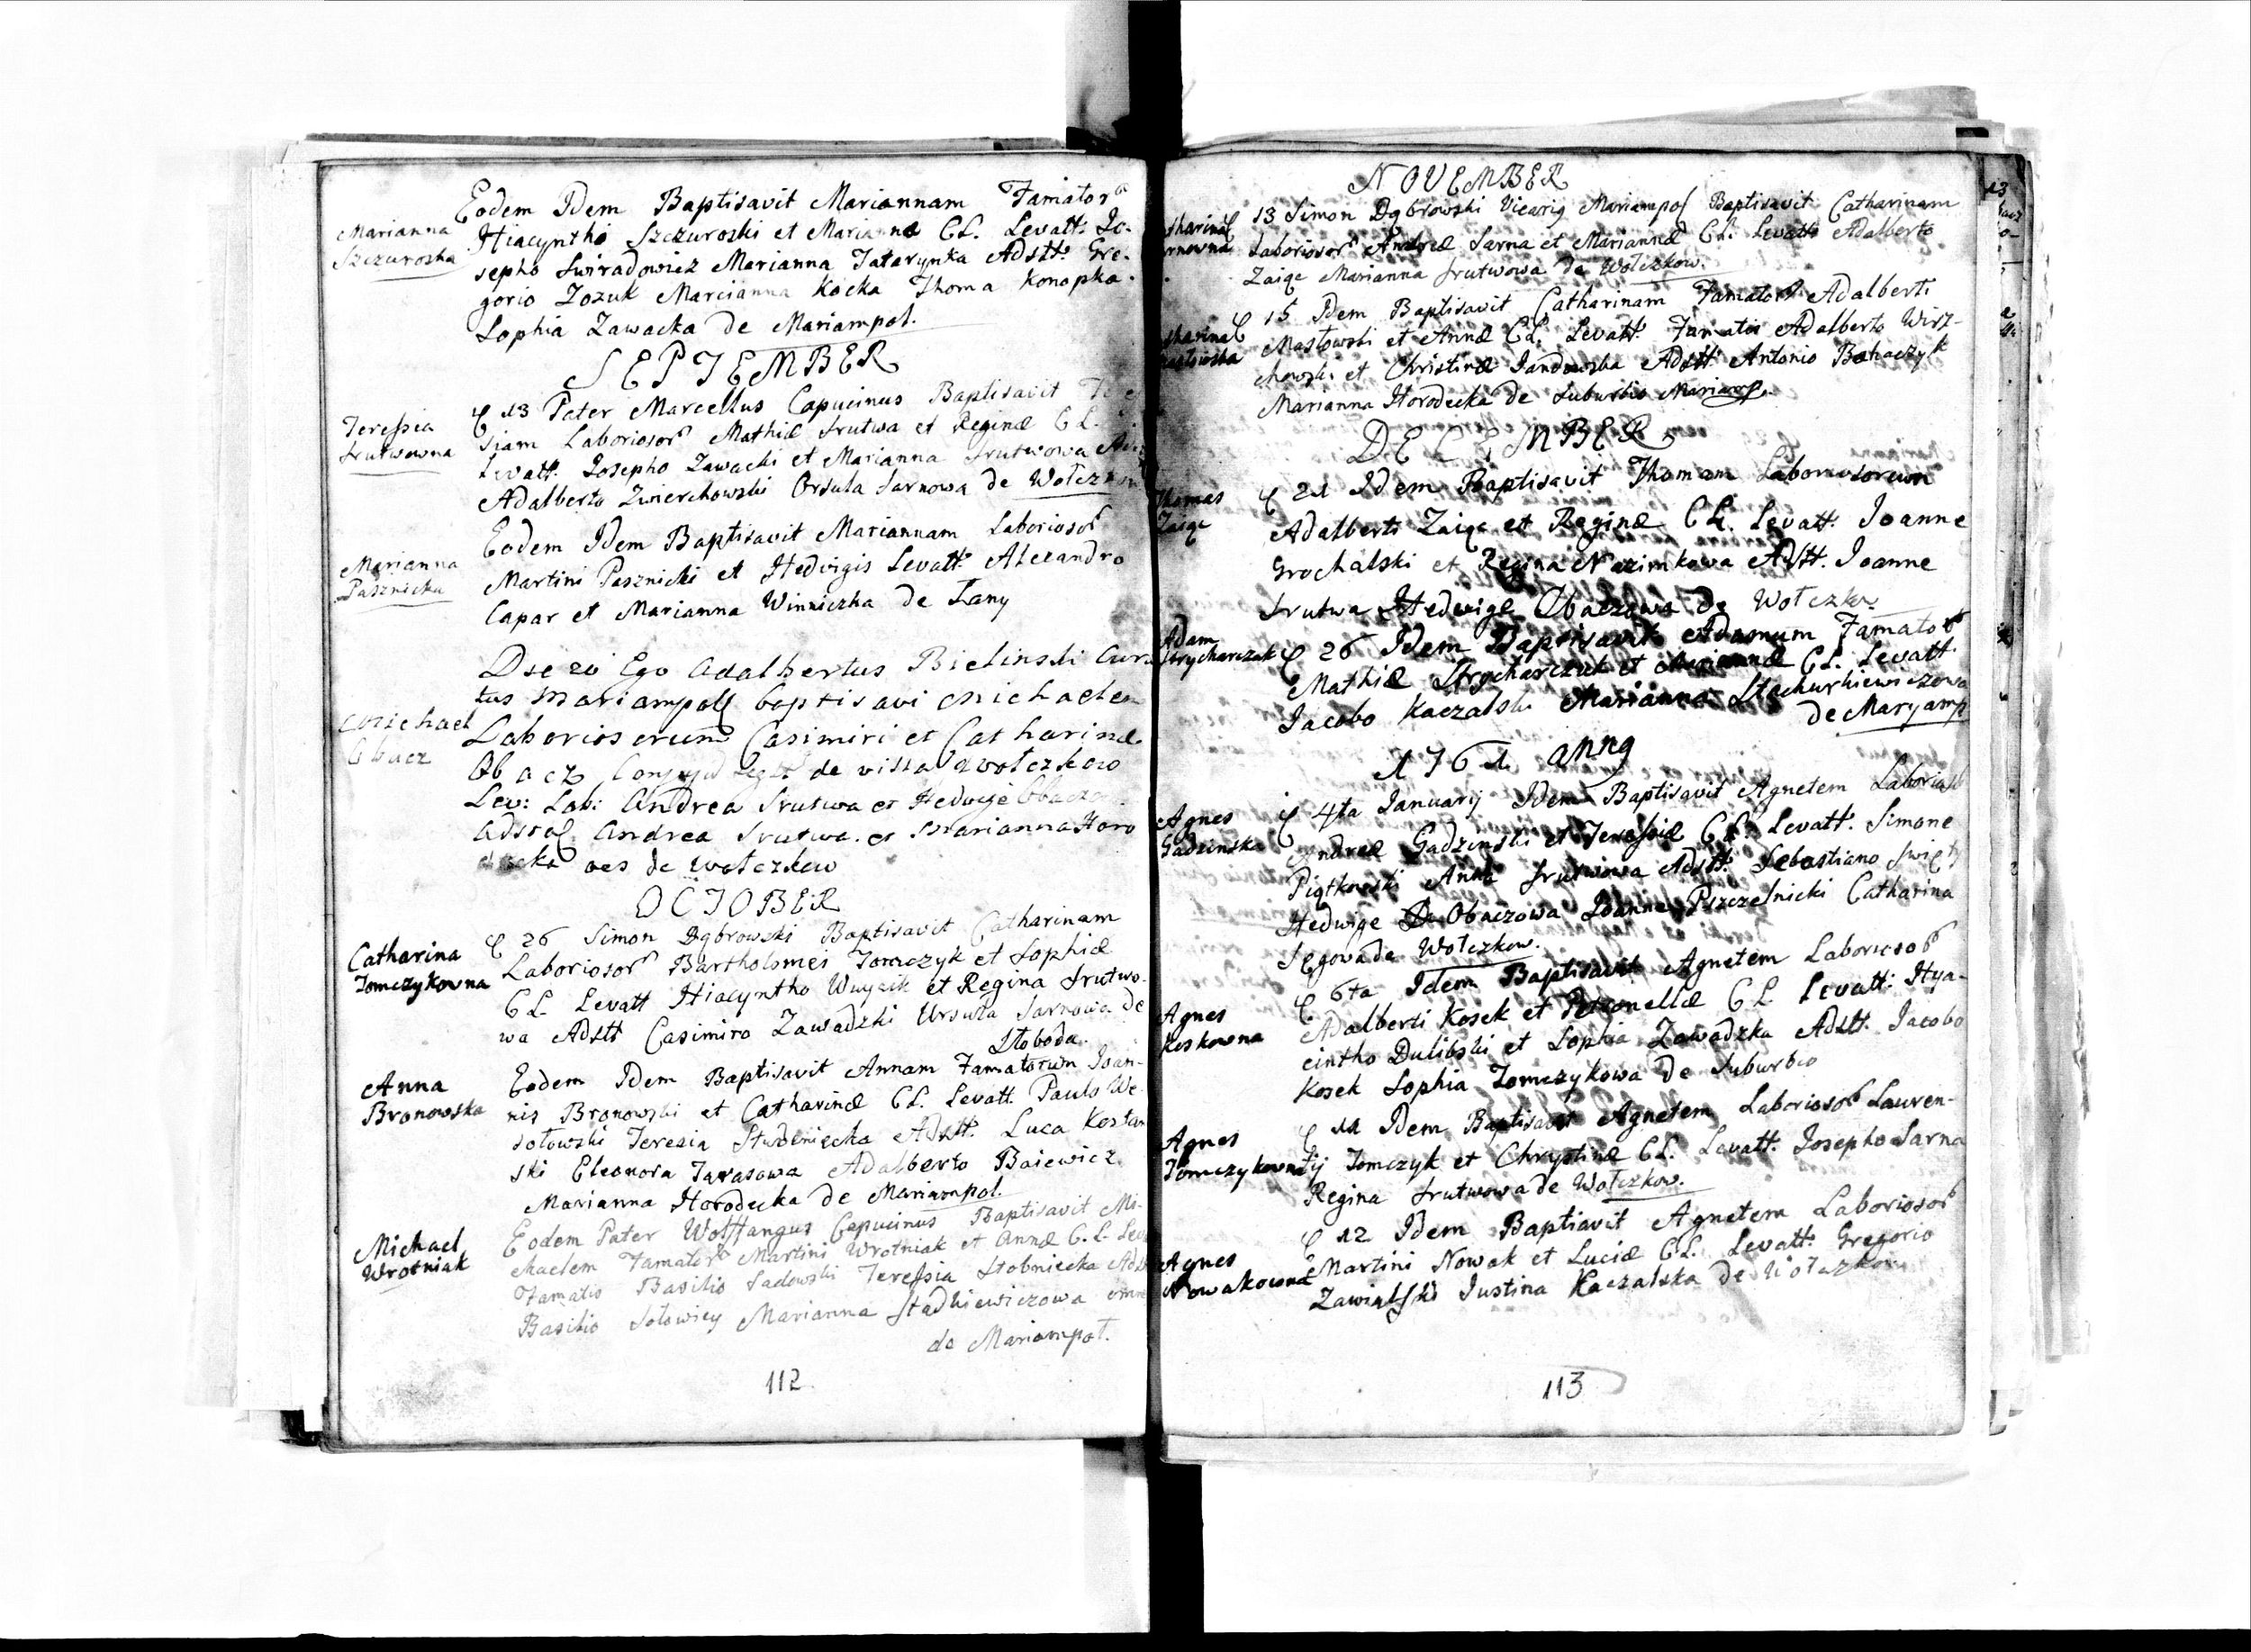 Marianna
Szczuroska
Eodem Idem Baptisavit Mariannam Famator
Hiacynthi Szczuroski et Mariannæ CL. Levatt. Jo-
sepho Swiradowicz Marianna Tatarynka Adstt. Gre-
gorio Zozuk Marcianna Kocka Thoma Konopka
Sophia Zawacka de Mariampol.
SEPTEMBER
Teressia
Srutwowna
13 Pater Marcellus Capucinus Baptisavit
siam Laborioso Mathiæ Srutwa et Reginæ CL.
Levatt. Josepho Zawacki et Marianna Srutwowa
Adalberto Zwierchowski Orsula Sarnowa de
Marianna
Pasznicka
Eodem Idem Baptisavit Mariannam Laborioso
Martini Pasznicki et Hedvigis Levatt. Alexandro
Capar et Marianna Winniczka de Łany
Michael
Obacz
Die 20 Ego Adalbertus Bielinski
tus Mariampol baptisavi Michaelem
Laboriosorum Casimiri et Catharinæ
Obacz de villa Wołczkow
Lev: Lab: Andrea Srutwa et Hedvige
Andrea Srutwa et Marianna Horo
de Wołczkow
OCTOBER
Catharina
Tomczykowna
26 Simon Dąbrowski Baptisavit Catharinam
Laborioso Bartholomei Tomczyk et Sophiæ
CL. Levatt Hiacyntho Wuycik et Regina Srutwo-
wa Adstt Casimiro Zawadzki Ursula Sarnowa de
Słoboda.
Anna
Bronowska
Eodem Idem Baptisavit Annam Famatorum Joan-
nis Bronowski et Catharinæ CL. Levatt. Paulo We-
sołowski Teresia Studeniecka Adstt. Luca
ski Eleonora Tarasowa Adalberto Baiewicz
Marianna Horodecka de Mariampol.
Michael
Wrotniak
Eodem Pater Wolffangus Capucinus Baptisavit Mi-
chaelem Famator Martini Wrotniak et Annæ C.L.
Famatis Basilio Sadowski Teressia Stobniecka
Basilio Sołowiey Marianna Stadkiewiczowa
de Mariampol.
112
NOVEMBER
13 Simon Dąbrowski Vicariq Mariampol Baptisavit Catharinam
Laborioso Andreæ Sarna et Mariannæ CL. Levatt Adalberto
Zaiąc Marianna Srutwowa de Wołczkow.
15 Idem Baptisavit Catharinam Famator Adalberti
Masłowski et Annæ CL. Levatt. Famatis Adalberto Wirz-
chowski et Christina Adstt. Antonio Bahaczyk
Marianna Horodecka de Suburbio Mariamp.
DECEMBER
Thomas
Zaiąc
21 Idem Baptisavit Thomam Laboriosorum
Adalberti Zaiąc et Reginæ CL. Levatt. Joanne
Grochalski et Regina Nazimkowa Adstt. Joanne
Srutwa Hedvige Obaczowa de Wołczkow
Adam
Strycharczak
26 Idem Baptisavit Adamum Famator
Mathiæ Strycharczuk et Mariannæ CL. Levatt
Jacobo Kaczalski Marianna Stachurkiewiczowa
de Maryamp
1761 annq
Agnes
Gadzinska
4ta Januarij Idem Baptisavit Agnetem
Andreæ Gadzinski et Teressiæ CL. Levatt. Simone
Piątkowski Anna Srutwowa Adstt. Sebastiano
Hedwige Obaczowa Joanne Pszczelnicki Catharina
Segowa de Wołczkow.
Agnes
Koskowna
6ta Idem Baptisavit Agnetem Laborioso
Adalberti Kosek et Petronellæ CL Levatt. Hya-
cintho Dulibski et Sophia Zawadzka Adstt. Jacobo
Kosek Sophia Tomczykowa de Suburbio
Agnes
Tomczykowna
11 Idem Baptisavit Agnetem Laborioso Lauren-
tij Tomczyk et Chrystinæ CL. Levatt. Josepho Sarna
Regina Srutwowa de Wołczkow.
Agnes
Nowakowna
12 Idem Baptiavit Agnetem Laborioso
Martini Nowak et Luciæ CL. Levatt. Gregorio
Justina Kaczalska de Wołczkow
113